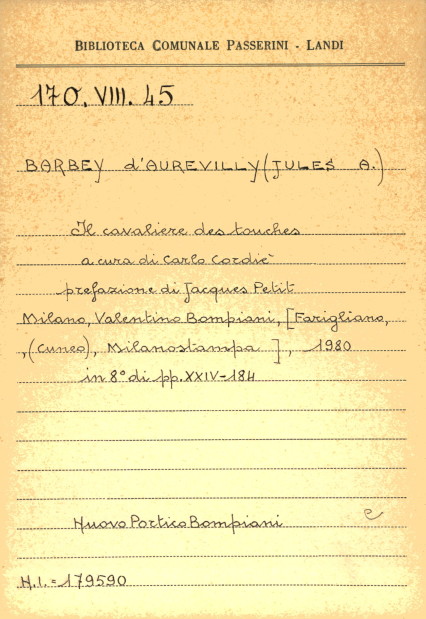 BIBLIOTECA COMUNALE PASSERINI - LANDI
170. VIII. 45
BARBEY d'AUREVILLY (JULES A.)
Il cavaliere des touches
a cura di Carlo Cordiè
prefazione di Jacques Petit
Milano, Valentino Bompiani, [Farigliano,
,(Cuneo), Milanostampa ], 1980
in 8° di pp. XXIV-184
Nuovo Portico Bompiani
e
N.I. = 179590